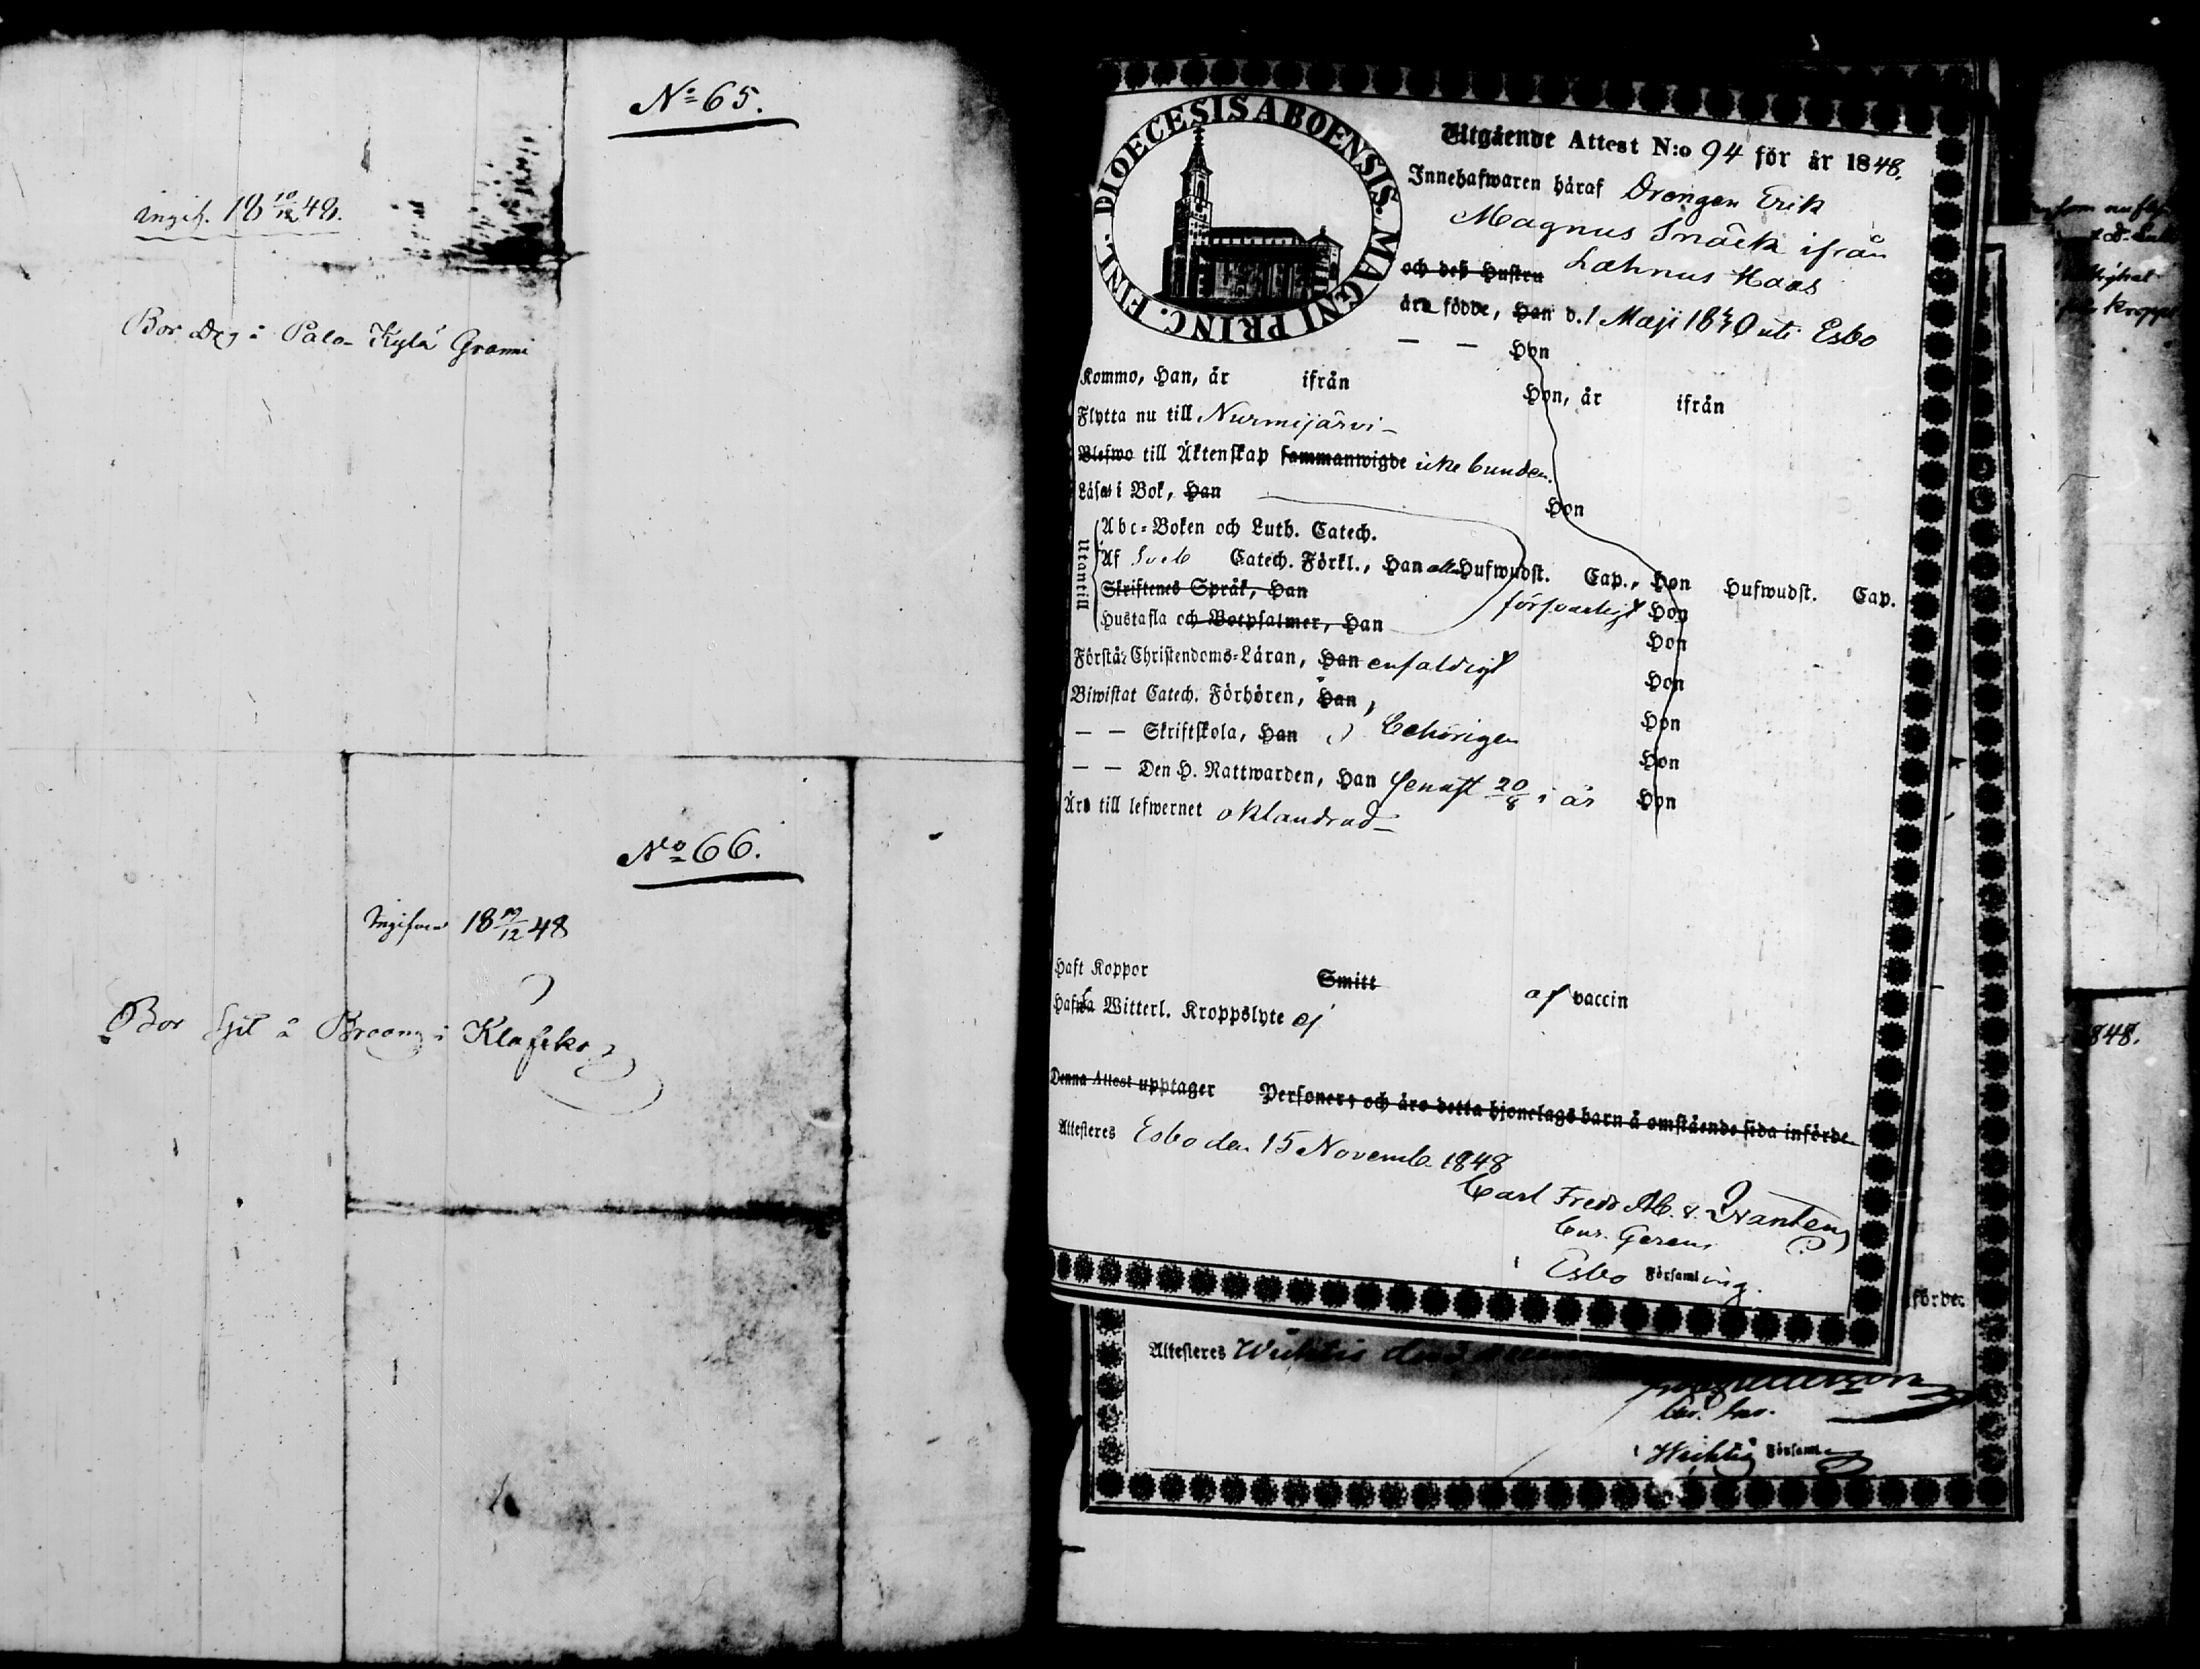 No 65.
ingif. 18 10/12 48.
Bor Drg i Palo-Kylä Grann
No 66.
Ingifven 18 10/12 48
Bor å i Klafsko
DIOECESIS ABOENSIS. MAGNI PRINC. FINL.
Utgående Attest N:o 94 för år 1848.
Innehafwaren häraf Drengen Erik
Magnus Snäck ifrån
och deß Hustru Lahnus Haas
äro födde, Han d. 1 Maji 1830 uti Esbo
— — Hon
Kommo, Han, år ifrån Hon, år ifrån
Flytta nu till Nurmijärvi –
Blefwo till Äktenskap sammanwigde icke bunden.
Läsa i Bok, Han Hon
Utantill
Abc-Boken och Luth. Catech.
Af Sveb Catech. Förkl., Han alla Hufwudst. Cap., Hon Hufwudst. Cap.
Skriftenes Språk, Han försvarligt Hon
Hustafla och Botpsalmer, Han Hon
Förstår Christendoms-Läran, Han enfaldigt Hon
Biwistat Catech. Förhören, Han Hon
— — Skriftskola, Han behörigen Hon
— — Den H. Nattwarden, Han senast 20/8 i år Hon
Äro till lefwernet oklandrad –
Haft Koppor Smitt af vaccin
Hafwa Witterl. Kroppslyte ej
Denna Attest upptager Personer; och äro detta hjonelags barn å omstående sida införde
Attesteres Esbo den 15 Novemb. 1848
Carl Fredr Ab. v. Qvanten
Cur. Gerens
i Esbo Församling.
förde.
Attesteres Wichtis den
i Wichtis Församl
1848.